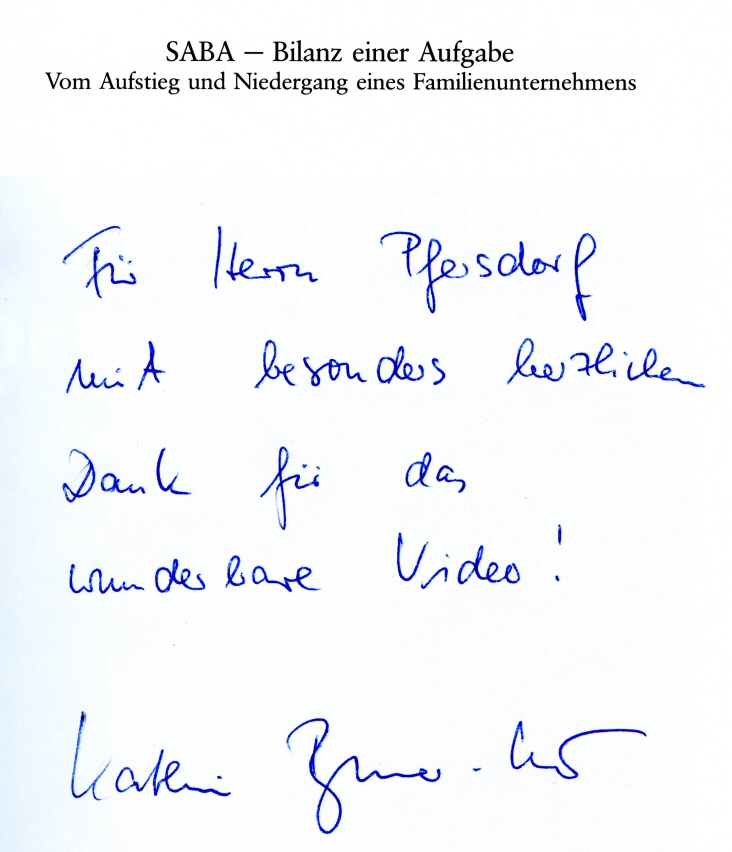 SABA — Bilanz einer Aufgabe
Vom Aufstieg und Niedergang eines Familienunternehmens
Für Herrn Pfersdorf
mit besonders herzlichem
Dank für das
wunderbare Video!
Kathrin